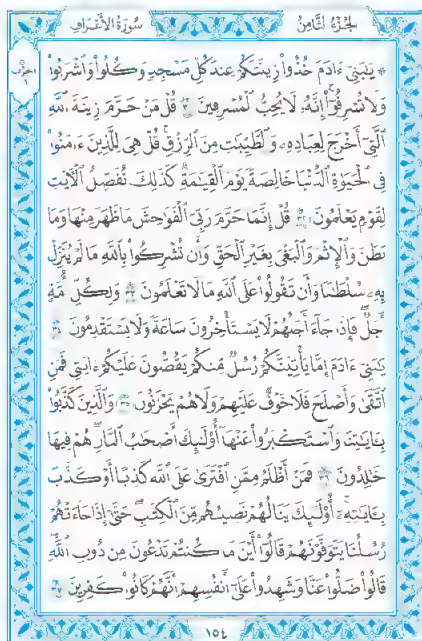 الجزء الثامن
سورة الأعراف
الحزب
* يَٰبَنِىٓ ءَادَمَ خُذُوا۟ زِينَتَكُمْ عِندَ كُلِّ مَسْجِدٍ وَكُلُوا۟ وَٱشْرَبُوا۟
وَلَا تُسْرِفُوٓا۟ إِنَّهُۥ لَا يُحِبُّ ٱلْمُسْرِفِينَ ٣١ قُلْ مَنْ حَرَّمَ زِينَةَ ٱللَّهِ
ٱلَّتِىٓ أَخْرَجَ لِعِبَادِهِۦ وَٱلطَّيِّبَٰتِ مِنَ ٱلرِّزْقِ قُلْ هِىَ لِلَّذِينَ ءَامَنُوا۟
فِى ٱلْحَيَوٰةِ ٱلدُّنْيَا خَالِصَةً يَوْمَ ٱلْقِيَٰمَةِ كَذَٰلِكَ نُفَصِّلُ ٱلْـَٔايَٰتِ
لِقَوْمٍ يَعْلَمُونَ ٣٢ قُلْ إِنَّمَا حَرَّمَ رَبِّىَ ٱلْفَوَٰحِشَ مَا ظَهَرَ مِنْهَا وَمَا
بَطَنَ وَٱلْإِثْمَ وَٱلْبَغْىَ بِغَيْرِ ٱلْحَقِّ وَأَن تُشْرِكُوا۟ بِٱللَّهِ مَا لَمْ يُنَزِّلْ
بِهِۦ سُلْطَٰنًا وَأَن تَقُولُوا۟ عَلَى ٱللَّهِ مَا لَا تَعْلَمُونَ ٣٣ وَلِكُلِّ أُمَّةٍ
أَجَلٌ فَإِذَا جَآءَ أَجَلُهُمْ لَا يَسْتَأْخِرُونَ سَاعَةً وَلَا يَسْتَقْدِمُونَ ٣٤
يَٰبَنِىٓ ءَادَمَ إِمَّا يَأْتِيَنَّكُمْ رُسُلٌ مِّنكُمْ يَقُصُّونَ عَلَيْكُمْ ءَايَٰتِى فَمَنِ
ٱتَّقَىٰ وَأَصْلَحَ فَلَا خَوْفٌ عَلَيْهِمْ وَلَا هُمْ يَحْزَنُونَ ٣٥ وَٱلَّذِينَ كَذَّبُوا۟
بِـَٔايَٰتِنَا وَٱسْتَكْبَرُوا۟ عَنْهَآ أُو۟لَٰٓئِكَ أَصْحَٰبُ ٱلنَّارِ هُمْ فِيهَا
خَٰلِدُونَ ٣٦ فَمَنْ أَظْلَمُ مِمَّنِ ٱفْتَرَىٰ عَلَى ٱللَّهِ كَذِبًا أَوْ كَذَّبَ
بِـَٔايَٰتِهِۦٓ أُو۟لَٰٓئِكَ يَنَالُهُمْ نَصِيبُهُم مِّنَ ٱلْكِتَٰبِ حَتَّىٰٓ إِذَا جَآءَتْهُمْ
رُسُلُنَا يَتَوَفَّوْنَهُمْ قَالُوٓا۟ أَيْنَ مَا كُنتُمْ تَدْعُونَ مِن دُونِ ٱللَّهِ
قَالُوا۟ ضَلُّوا۟ عَنَّا وَشَهِدُوا۟ عَلَىٰٓ أَنفُسِهِمْ أَنَّهُمْ كَانُوا۟ كَٰفِرِينَ ٣٧
١٥٤